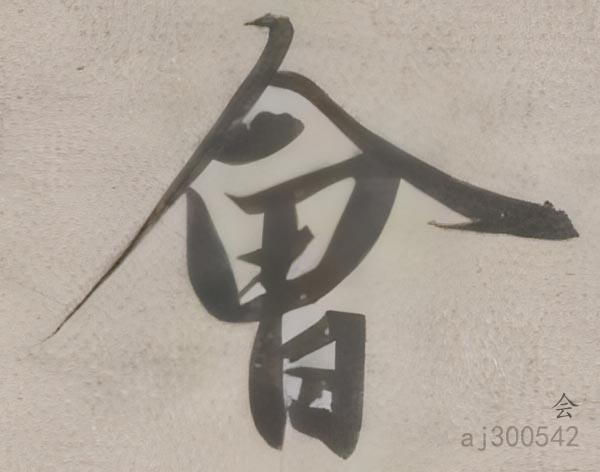 會
会
aj300542